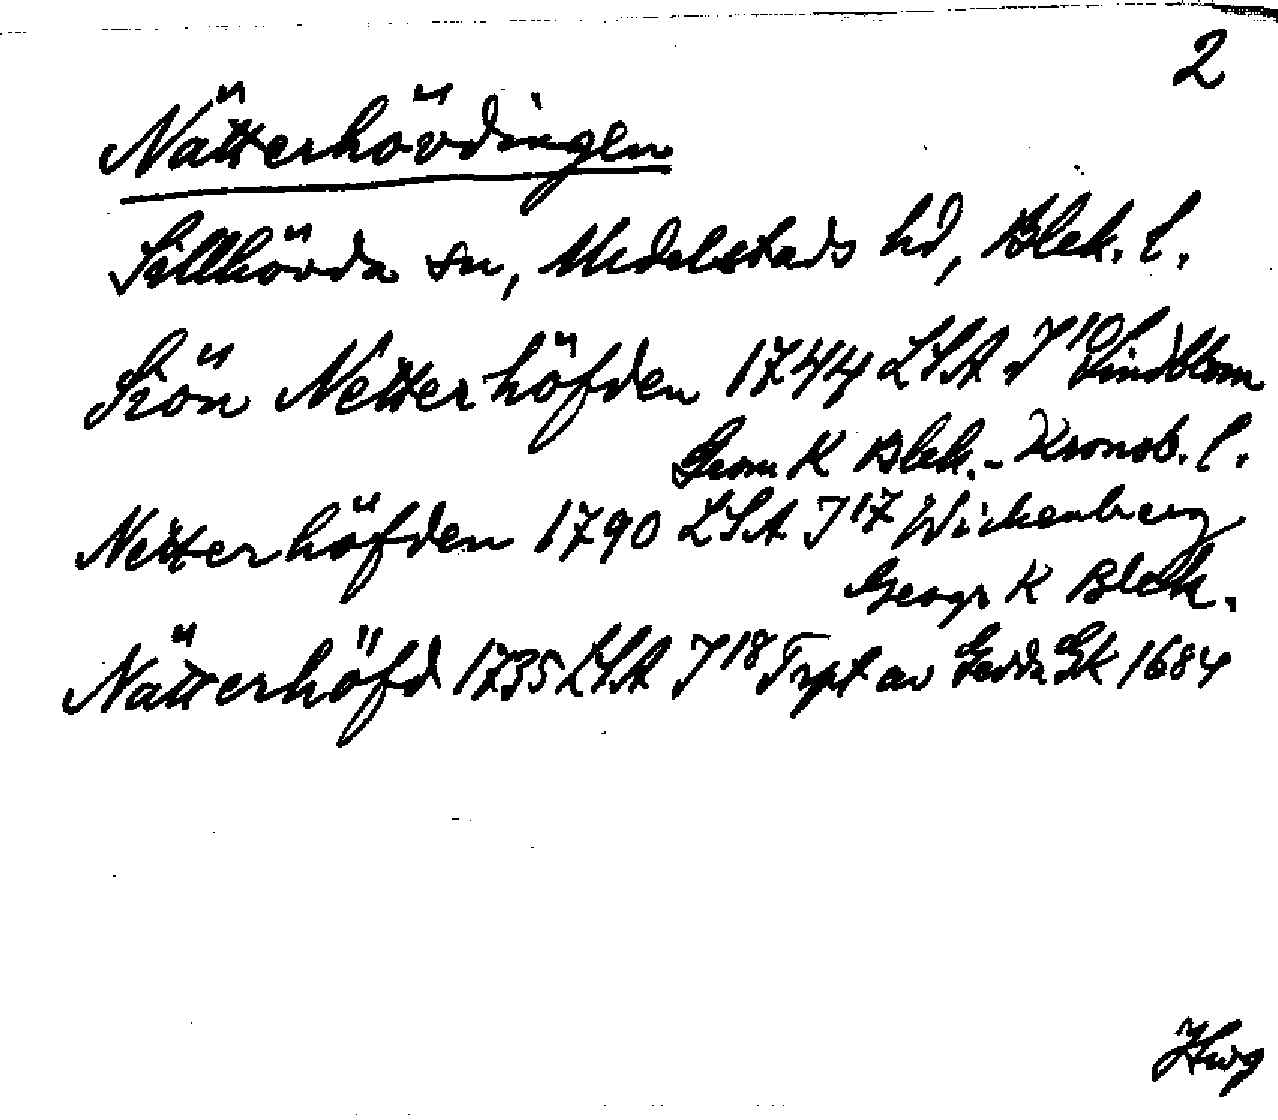 2
Nätterhövdingen
Sillhövda sn, Medelstads hd, Blek. l.
Siön Netterhöfden 1744 LSA J 10 Lindblom
Geom K Blek. - Kronob. l.
Netterhöfden 1790 LSA J 17 Wickenberg
Geogr K Blek.
Nätterhöfd 1735 LSA J 18 Trpt av Gedda Gk 1684
Hwg